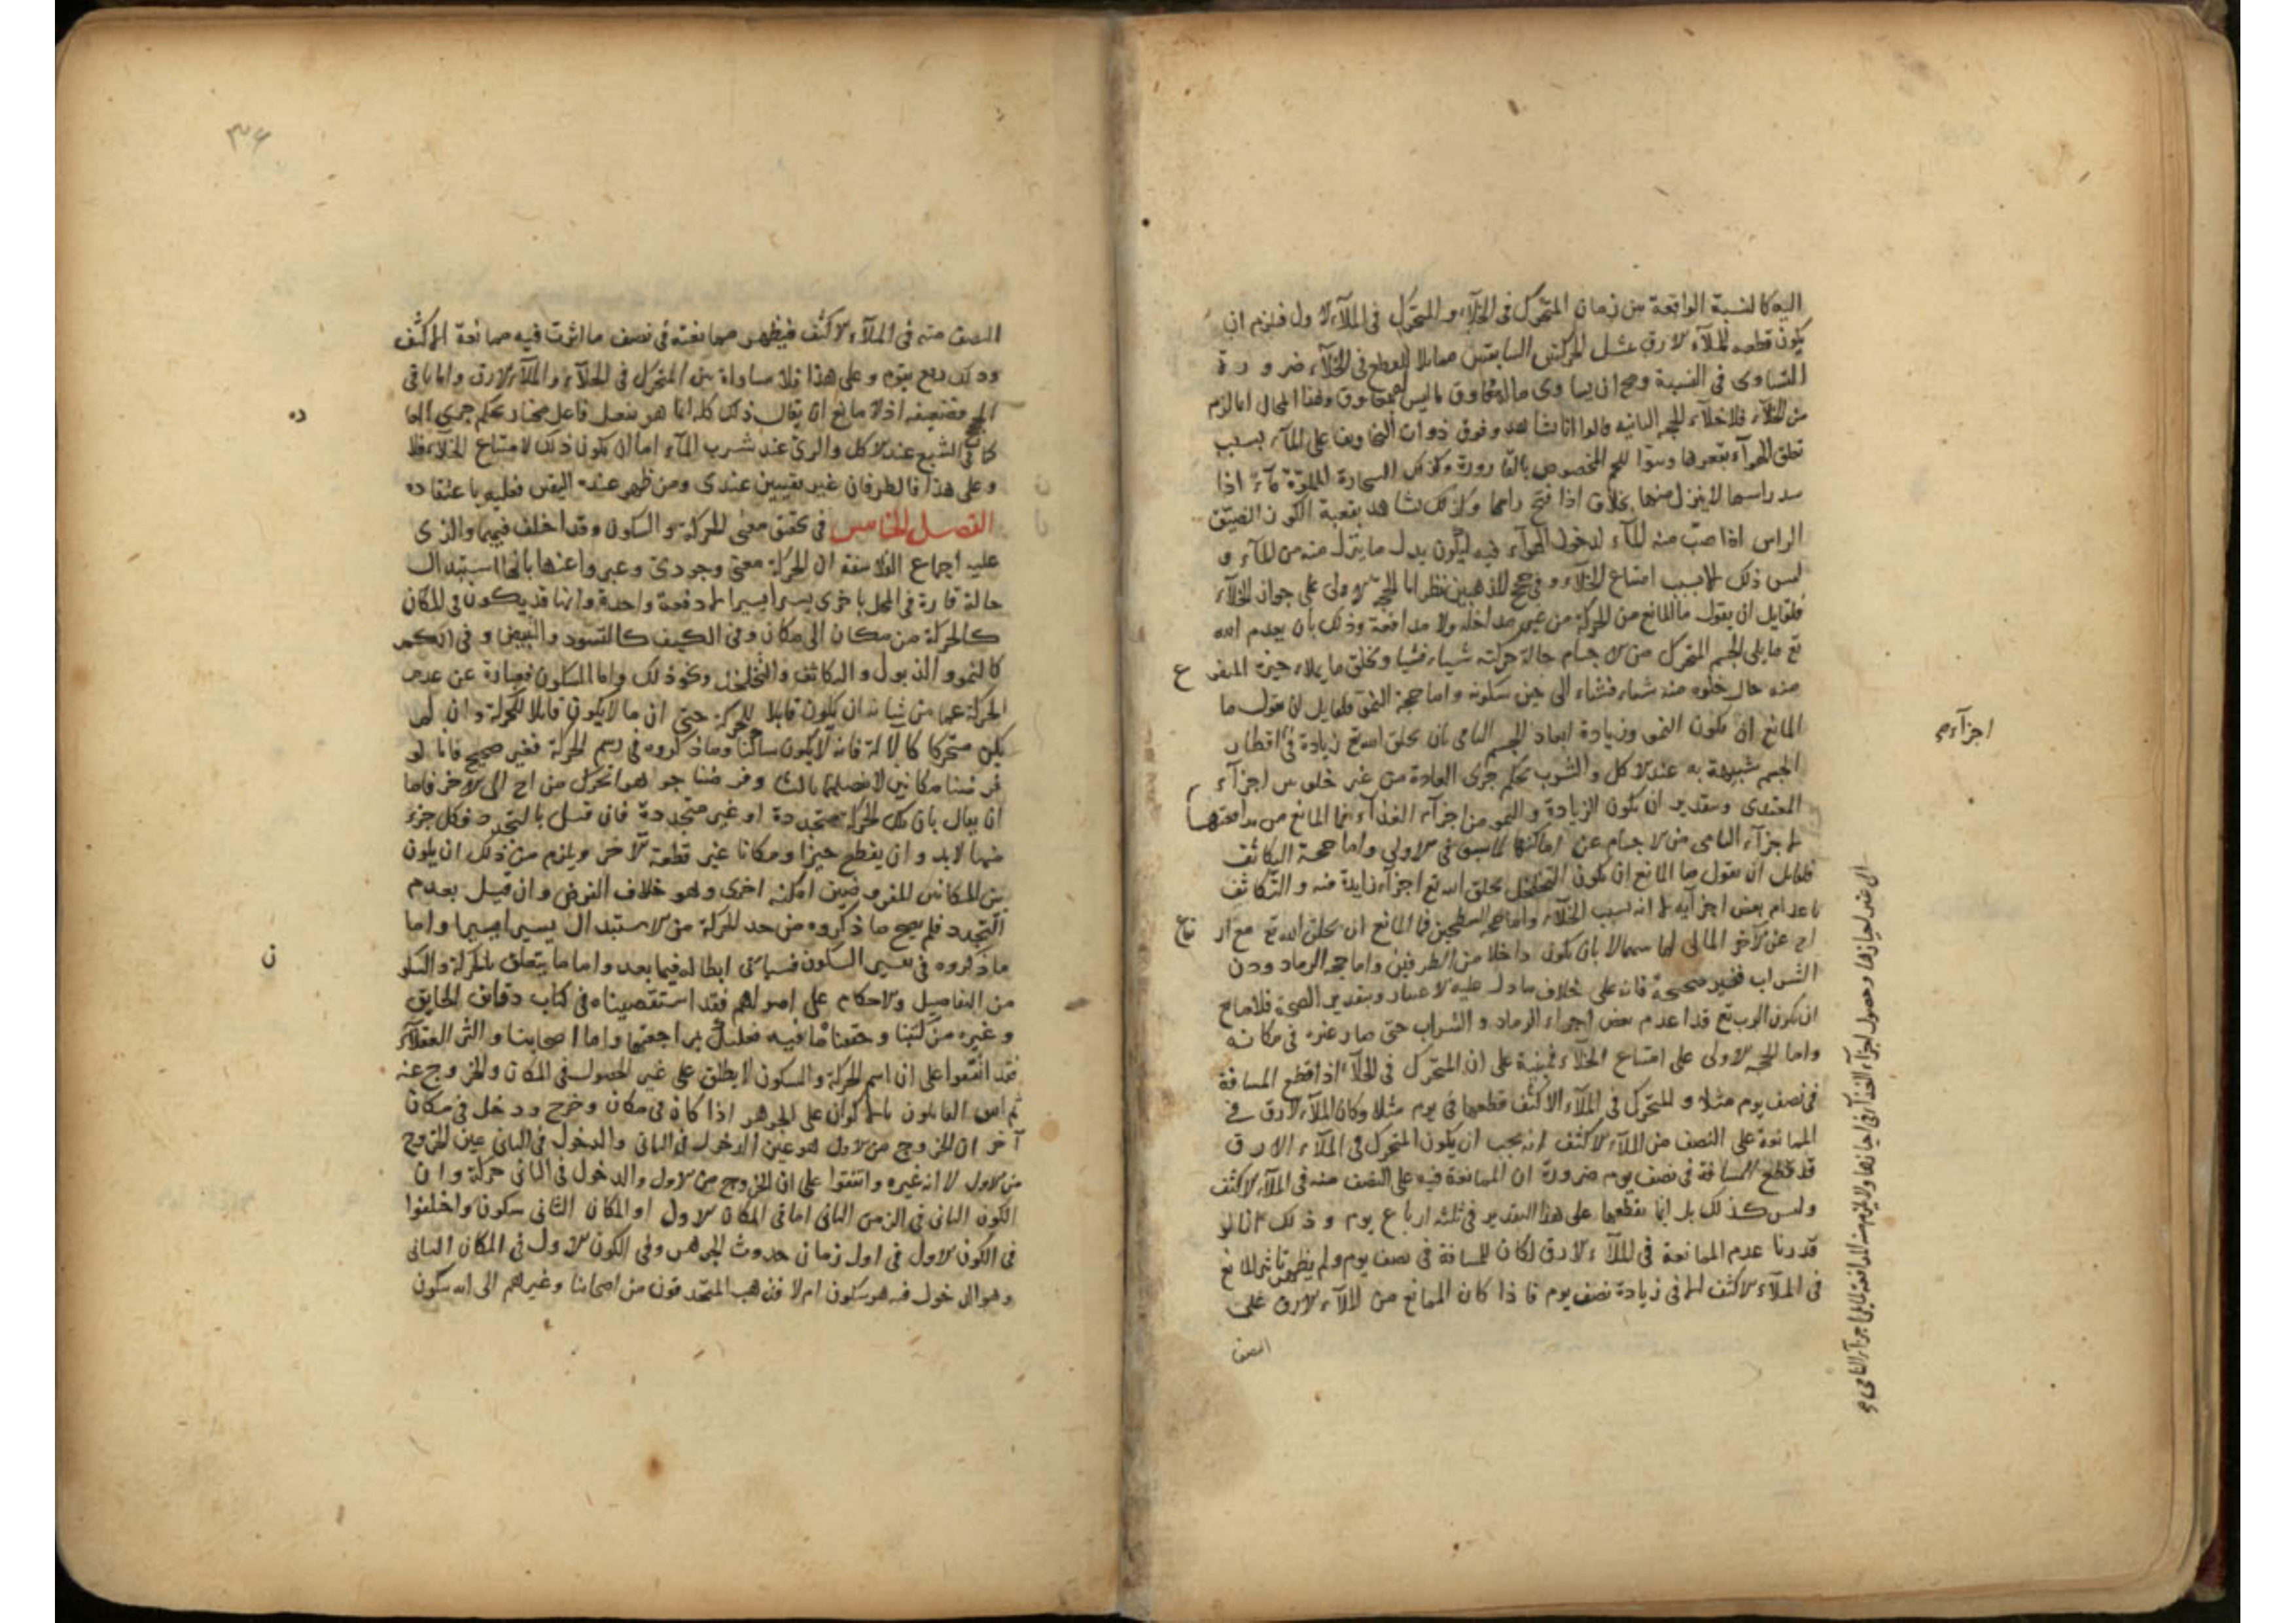 اليه كالنسبة الواقعة بين زمان المتحرك في الخلاء و المتحرك في الملاء الاول فيلزم ان
يكون قطعه للملاء الارق بمثل الحركتين السابقتين مماثلا للقطع في الخلاء ضرورة
التساوى في النسبة ومح ان يساوى ماله معاوق ما ليس له معاوق وهذا المحال انما لزم
من الخلاء فلا خلاء الحجة الثانية قالوا انا نشاهد وقوف ذوات على الماء بسبب
تعلق الهواء بقعرها المخصوص بالقارورة وكذلك السحارة المملوّة مآءً اذا
سد راسها لا ينزل منها بخلاف اذا فتح راسها وكذلك نشاهد بقبقة الكوز الضيّق
الراس اذا صبّ منه الماء لدخول الهواء فيه ليكون بدل ما ينزل منه من الماء و
ليس ذلك الا بسبب امتناع الخلاء وفي حجج المذهبين نظر اما الحجة الاولى على جواز الخلاء
فلقايل ان يقول ما المانع من الحركة من غير مداخلة ولا مدافعة وذلك بان يعدم الله
تع ما يلى الجسم المتحرك من الاجسام حالة حركته شياء فشيا ويخلق ما يملاء حيزه
منه حال خلوه منه شياء فشياء الى حين سكونه واما حجة النمو فلقايل ان يقول ما
المانع ان يكون النمو وزيادة ابعاد الجسم النامى بان يخلق الله تع زيادة في اقطار
الجسم شبيهة به عند الاكل والشرب بحكم جرى العادة من غير خلو بين اجزآء
المغتذى وبتقدير ان يكون الزيادة والنمو من اجزآء الغذآء فما المانع من مدافعتها
الاجزآء النامى من الاجسام عن اماكنها كما سبق في الاولى واما حجة التكاثف
فلقايل ان يقول ما المانع ان يكون التخلخل بخلق الله تع اجزآء زايدة فيه و التكاثف
باعدام بعض اجزآيه لا انه بسبب الخلاء واما حجة السطحين فما المانع ان يخلق الله تع
عن الآخر المالى لما بينهما لا بان يكون داخلا من الطرفين واما حجة الرماد ودن
الشراب فغير صحيحة فانه على خلاف ما دل عليه الاعتبار وبتقدير الصحة فلا مانع
ان يكون الرب تع قد اعدم بعض اجزاء الرماد و الشراب حتى صار غيره في مكانه
واما الحجة الاولى على امتناع الخلاء فمبنية على ان المتحرك في الخلاء اذا قطع المسافة
في نصف يوم مثلا و المتحرك في الملاء الاكثف قطعها في يوم مثلا وكان الملاء الارق في
الممانعة على النصف من الملاء الاكثف انه يجب ان يكون المتحرك في الملاء الارق
قد قطع المسافة في نصف يوم ضرورة ان الممانعة فيه على النصف منه في الملاء الاكثف
وليس كذلك بل انما يقطعها على هذا التقدير في ثلثة ارباع يوم وذلك انا لو
قدرنا عدم الممانعة في الملاء الارق لكان للمسافة في نصف يوم ولم يظهر تاثير المانع
في الملاء الاكثف الا في زيادة نصف يوم فاذا كان الممانع من الملاء الارق على
النصف
اجزآء
الى غير احيازها وحصول اجزآء الغذآء في احيازها ولا يلزم منه المدافعة لما يلى اجزآء النامى
٣٤
النصف منه في الملاء الاكثف فيظهر ممانعته في نصف ما اثرت فيه ممانعة الاكثف
وذلك ربع يوم وعلى هذا فلا مساواة بين المتحرك في الخلاء والملاء الارق واما باقى
الحجج فضعيفه اذ لا مانع ان يقال ذلك كله انما هو بفعل فاعل مختار بحكم جرى العا
كما في الشبع عند الاكل والرى عند شرب الماء اما ان يكون ذلك لامتناع الخلاء فلا
وعلى هذا فالطرفان غير يقينيين عندى ومن ظهر عنده اليقين فعليه باعتقاده
الفصل الخامس في تحقيق معنى الحركة والسكون وقد اختلف فيهما والذى
عليه اجماع الفلاسفة ان الحركة معنى وجودى وعبروا عنها بانها استبدال
حالة قارة في المحل باخرى يسيرا يسيرا لا دفعة واحدة وانها قد يكون في المكان
كالحركة من مكان الى مكان وفى الكيف كالتسود والتبيض و في الكم
كالنمو والذبول والتكاثف والتخلخل ونحو ذلك واما السكون فعبارة عن عدم
الحركة عما من شانه ان يكون قابلا للحركة حتى ان ما لا يكون قابلا للحركة وان لم
يكن متحركا كالاله فانه لا يكون ساكنا وما ذكروه في رسم الحركة فغير صحيح فانا لو
فرضنا مكانين لا فصل بينهما بثالث وفرضنا جوهرا تحرك من احدهما الى الاخر فاما
ان يقال بان تلك الحركة متجددة او غير متجددة فان قيل بالتجدد فكل جزء
منها لابد وان يقطع حيزا ومكانا غير قطعة الآخر ويلزم من ذلك ان يكون
بين المكانين المفروضين امكنه اخرى وهو خلاف الفرض وان قيل بعدم
التجدد فلم يصح ما ذكروه من حد الحركة من الاستبدال يسيرا يسيرا واما
ما ذكروه في تفسير السكون فسياتى ابطاله فيما بعد واما ما يتعلق بالحركة والسكو
من التفاصيل والاحكام على اصولهم فقد استقصيناه في كتاب دقايق الحقايق
وغيره من كتبنا وحققنا ما فيه فعليك بمراجعتها واما اصحابنا واكثر العقلاء
فقد اتفقوا على ان اسم الحركة والسكون لا يطلق على غير الحصول في المكان والخروج عنه
ثم اتفق القايلون بالاكوان على الجوهر اذا كان في مكان وخرج ودخل في مكان
آخر ان الخروج من الاول هو عين الدخول في الثانى والدخول في الثانى عين الخروج
من الاول لا انه غيره واتفقوا على ان الخروج من الاول والدخول في الثانى حركة وان
الكون الثانى في الزمن الثانى اما في المكان الاول او المكان الثانى سكون واختلفوا
في الكون الاول في اول زمان حدوث الجوهر وفى الكون الاول في المكان الثانى
وهو الدخول فيه هو سكون ام لا فذهب المتحذقون من اصحابنا وغيرهم الى انه سكون